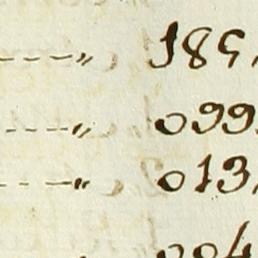 ----〃 185,
---〃 099,
----〃 013,
004